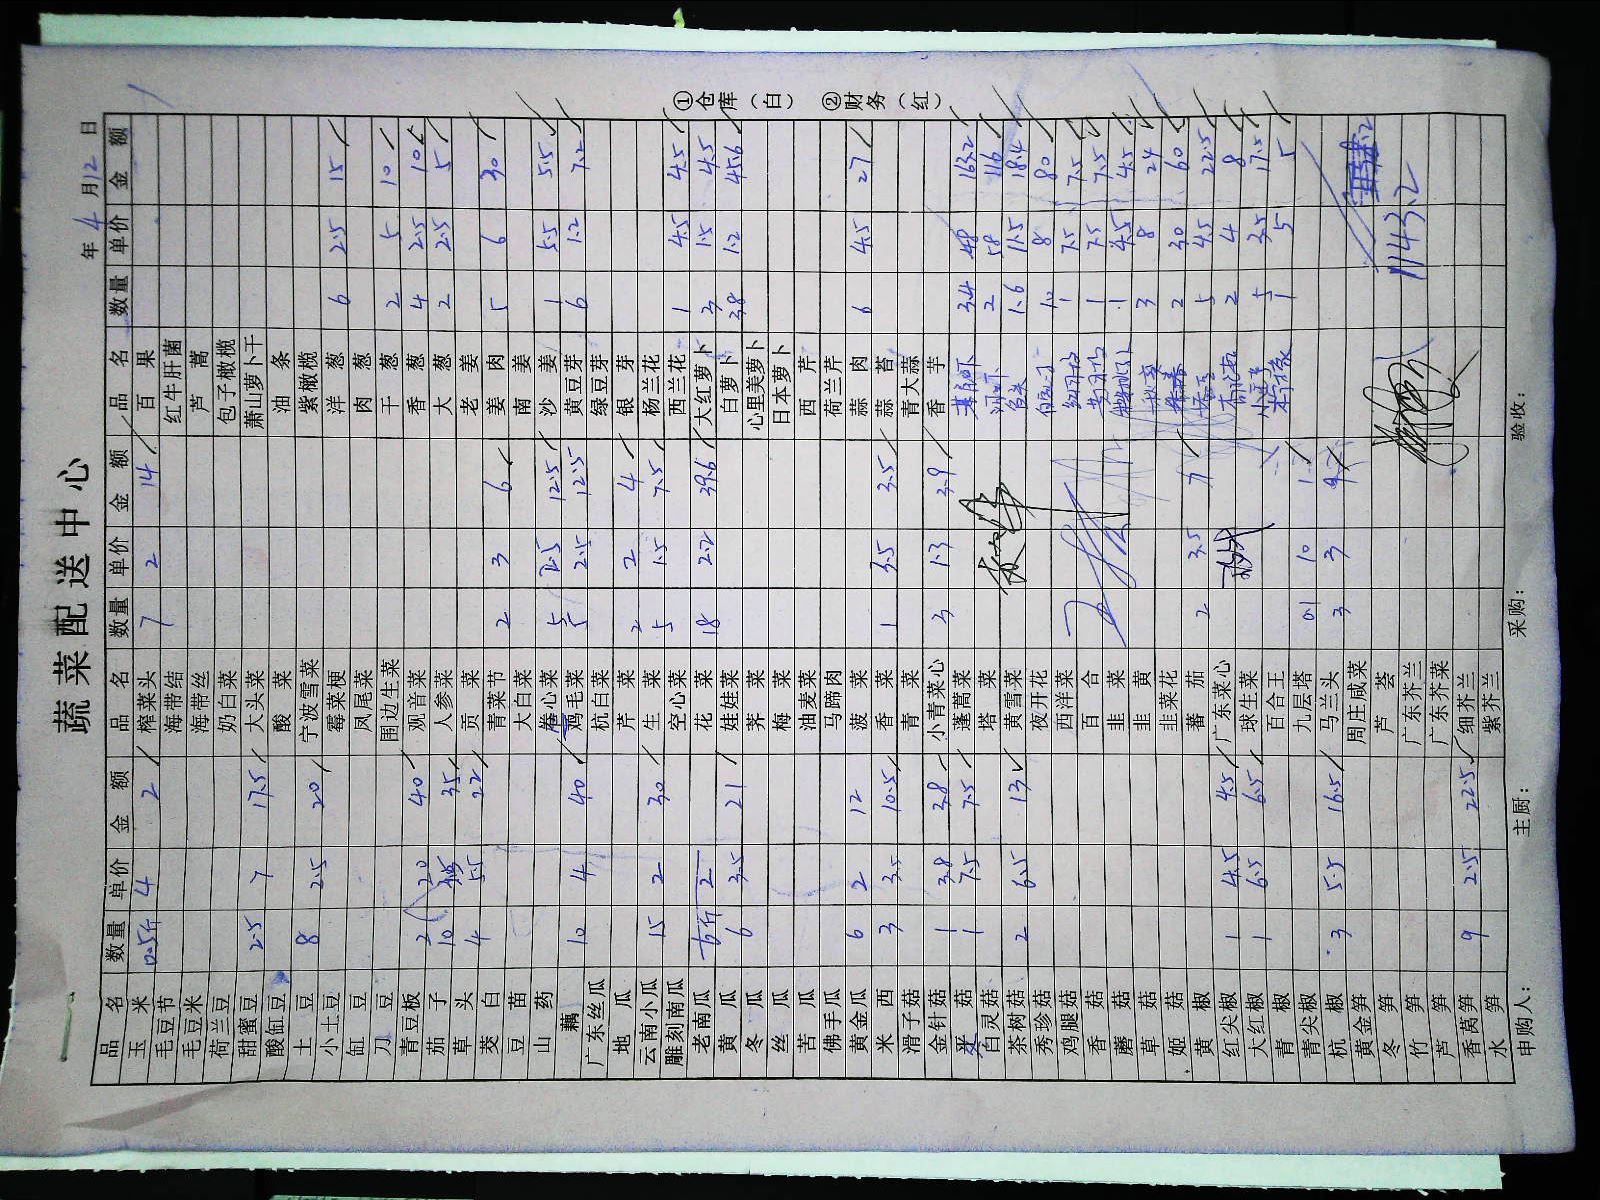 蔬菜配送中心
年 4 月 12 日
品名 数量 单价 金额 品名 数量 单价 金额 品名 数量 单价 金额
玉米 0.5斤 4 2 榨菜头 7 2 14 百果
毛豆节 海带结 红牛肝菌
毛豆米 海带丝 芦蒿
荷兰豆 奶白菜 包子橄榄
甜蜜豆 2.5 7 17.5 大头菜 萧山萝卜干
酸缸豆 酸菜 油条
土豆 8 2.5 20 宁波雪菜 紫橄榄
小土豆 霉菜梗 洋葱 6 2.5 15
缸豆 凤尾菜 肉葱
刀豆 围边生菜 干葱 2 5 10
青豆板 2 20 40 观音菜 香葱 4 2.5 10
茄子 10 3.5 35 人参菜 大葱 2 2.5 5
草头 4 5.5 22 贡菜 老姜
茭白 青菜节 2 3 6 姜肉 5 6 30
豆苗 大白菜 南姜
山药 卷心菜 5 2.5 12.5 沙姜 1 5.5 5.5
藕 10 4 40 鸡毛菜 5 2.5 12.5 黄豆芽 6 1.2 7.2
广东丝瓜 杭白菜 绿豆芽
地瓜 芹菜 2 2 4 银芽
云南小瓜 15 2 30 生菜 5 1.5 7.5 杨兰花
雕刻南瓜 空心菜 西兰花 1 4.5 4.5
老南瓜 6斤 2 花菜 18 2.2 39.6 大红萝卜 3 1.5 4.5
黄瓜 6 3.5 21 娃娃菜 白萝卜 38 1.2 45.6
冬瓜 荠菜 心里美萝卜
丝瓜 梅菜 日本萝卜
苦瓜 油麦菜 西芹
佛手瓜 马蹄肉 荷兰芹
黄金瓜 6 2 12 菠菜 蒜肉 6 4.5 27
米西 3 3.5 10.5 香菜 1 3.5 3.5 蒜苔
滑子菇 青菜 青大蒜
金针菇 1 3.8 3.8 小青菜心 3 1.3 3.9 香芋
菇 1 7.5 7.5 蓬蒿菜 3.4 48 163.2
白灵菇 塔菜 2 58 116
茶树菇 2 6.5 13 黄雪菜 1.6 11.5 18.4
秀珍菇 夜开花 10 8 80
鸡腿菇 西洋菜 1 7.5 7.5
香菇 百合 1 7.5 7.5
蘑菇 韭菜 1 4.5 4.5
草菇 韭黄 3 8 24
姬菇 韭菜花 2 30 60
黄椒 蕃茄 2 3.5 7 5 4.5 22.5
红尖椒 1 4.5 4.5 广东菜心 2 4 8
大红椒 1 6.5 6.5 球生菜 5 3.5 17.5
青椒 百合王 1 5 5
青尖椒 九层塔 0.1 10 1
杭椒 3 5.5 16.5 马兰头 3 3 9
黄金笋 周庄咸菜
冬笋 芦荟
竹笋 广东芥兰 1143.2
芦笋 广东芥菜
香莴笋 9 2.5 22.5 细芥兰
水笋 紫芥兰
申购人: 主厨: 采购: 验收:
①仓库(白) ②财务(红)